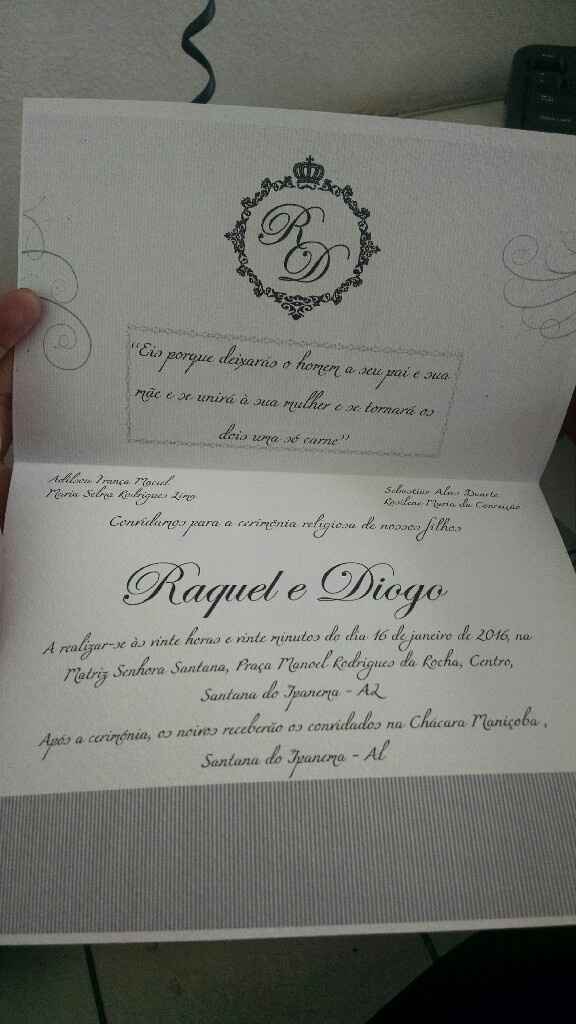 R
D
"Eis porque deixarás o homem a seu pai e sua
mãe e se unirá à sua mulher e se tornará os
dois uma só carne"
Adilson França Maciel
Maria Selma Rodrigues Lima
Sebastião Alves Duarte
Rosilene Maria da Conceição
Convidamos para a cerimônia religiosa de nossos filhos
Raquel e Diogo
A realizar-se às vinte horas e vinte minutos do dia 16 de janeiro de 2016, na
Matriz Senhora Santana, Praça Manoel Rodrigues da Rocha, Centro,
Santana do Ipanema - AL
Após a cerimônia, os noivos receberão os convidados na Chácara Maniçoba ,
Santana do Ipanema - Al